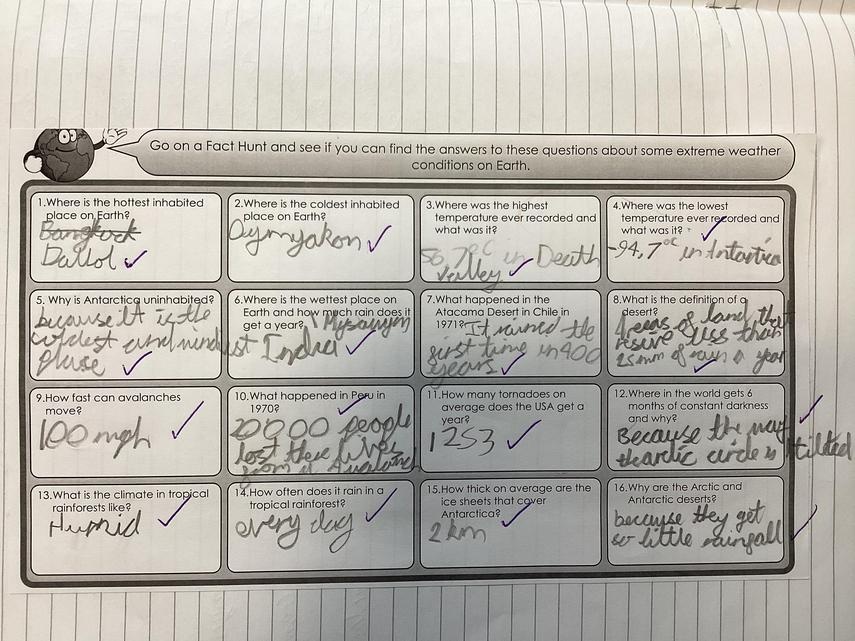 Go on a Fact Hunt and see if you can find the answers to these questions about some extreme weather
conditions on Earth.
1.Where is the hottest inhabited
place on Earth?
Dallol
2.Where is the coldest inhabited
place on Earth?
Oymyakon
3.Where was the highest
temperature ever recorded and
what was it?
56,7°C in Death
Valley
4.Where was the lowest
temperature ever recorded and
what was it?
-94,7°C in Antartica
5. Why is Antarctica uninhabited?
because it is the
coldest and windiest
plase
6.Where is the wettest place on
Earth and how much rain does it
get a year?
India
7.What happened in the
Atacama Desert in Chile in
1971? It rained the
first time in 400
years
8.What is the definition of a
desert?
Areas of land that
resive less than
25mm of rain a year
9.How fast can avalanches
move?
100 mph
10.What happened in Peru in
1970?
20000 people
lost there lives
from a Avalanch
11.How many tornados on
average does the USA get a
year?
1253
12.Where in the world gets 6
months of constant darkness
and why?
Because the way
the arctic circle is tilted
13.What is the climate in tropical
rainforests like?
Humid
14.How often does it rain in a
tropical rainforest?
every day
15.How thick on average are the
ice sheets that cover
Antarctica?
2 km
16.Why are the Arctic and
Antarctic deserts?
because they get
so little rainfall